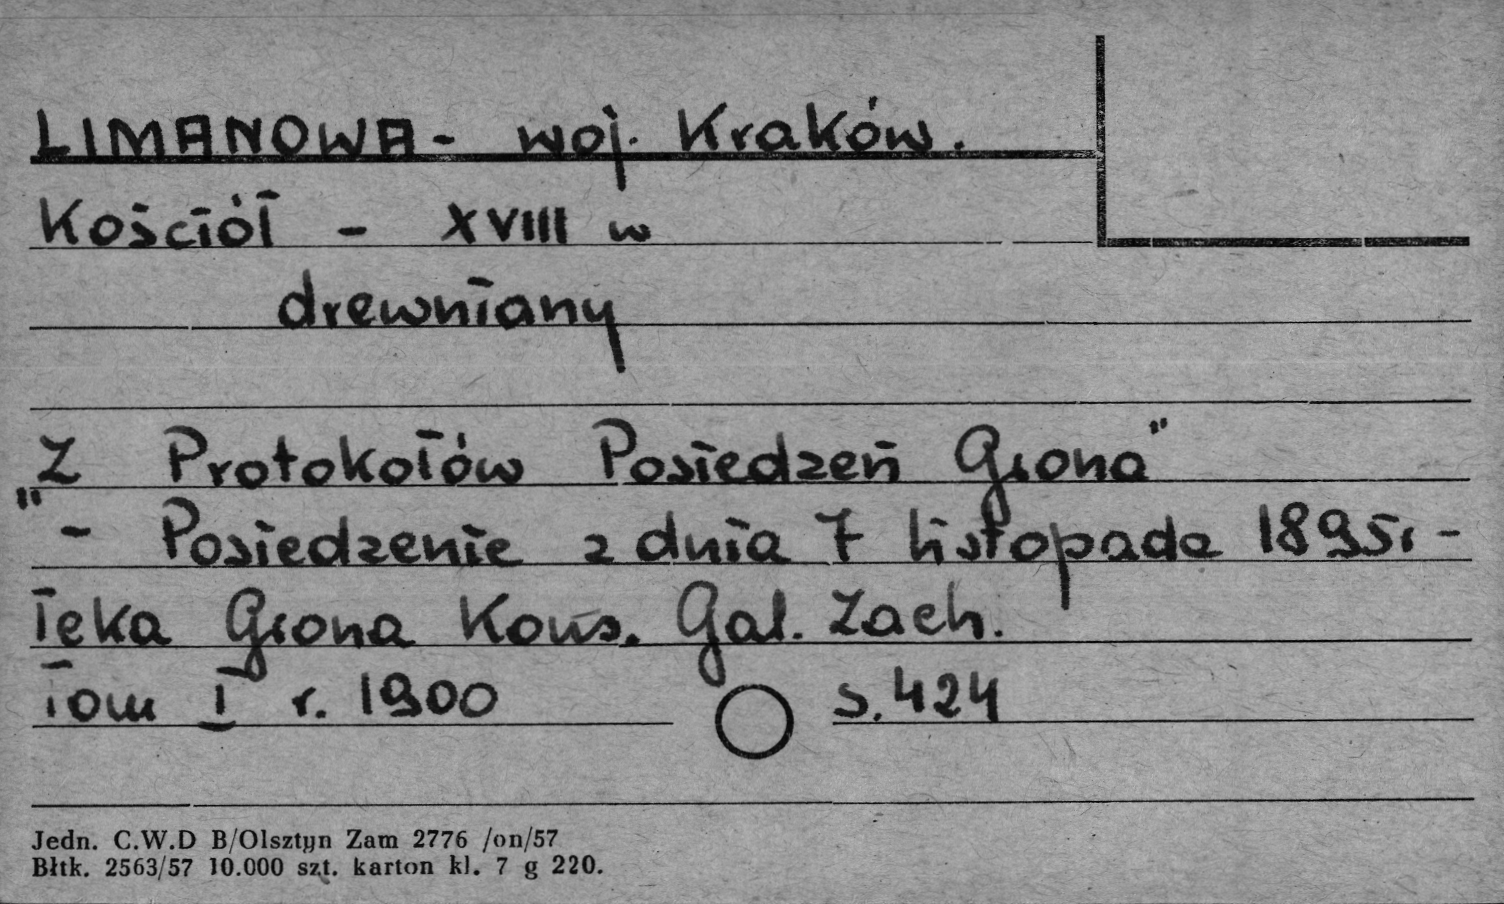 LIMANOWA - woj. Kraków.
Kościół - XVIII w
drewniany
"Z Protokołów Posiedzeń Grona"
- Posiedzenie z dnia 7 listopada 1895r -
Teka Grona Kons. Gal. Zach.
Tom I r. 1900 s. 424
Jedn. C.W.D B/Olsztyn Zam 2776 /on/57
Błtk. 2563/57 10.000 szt. karton kl. 7 g 220.